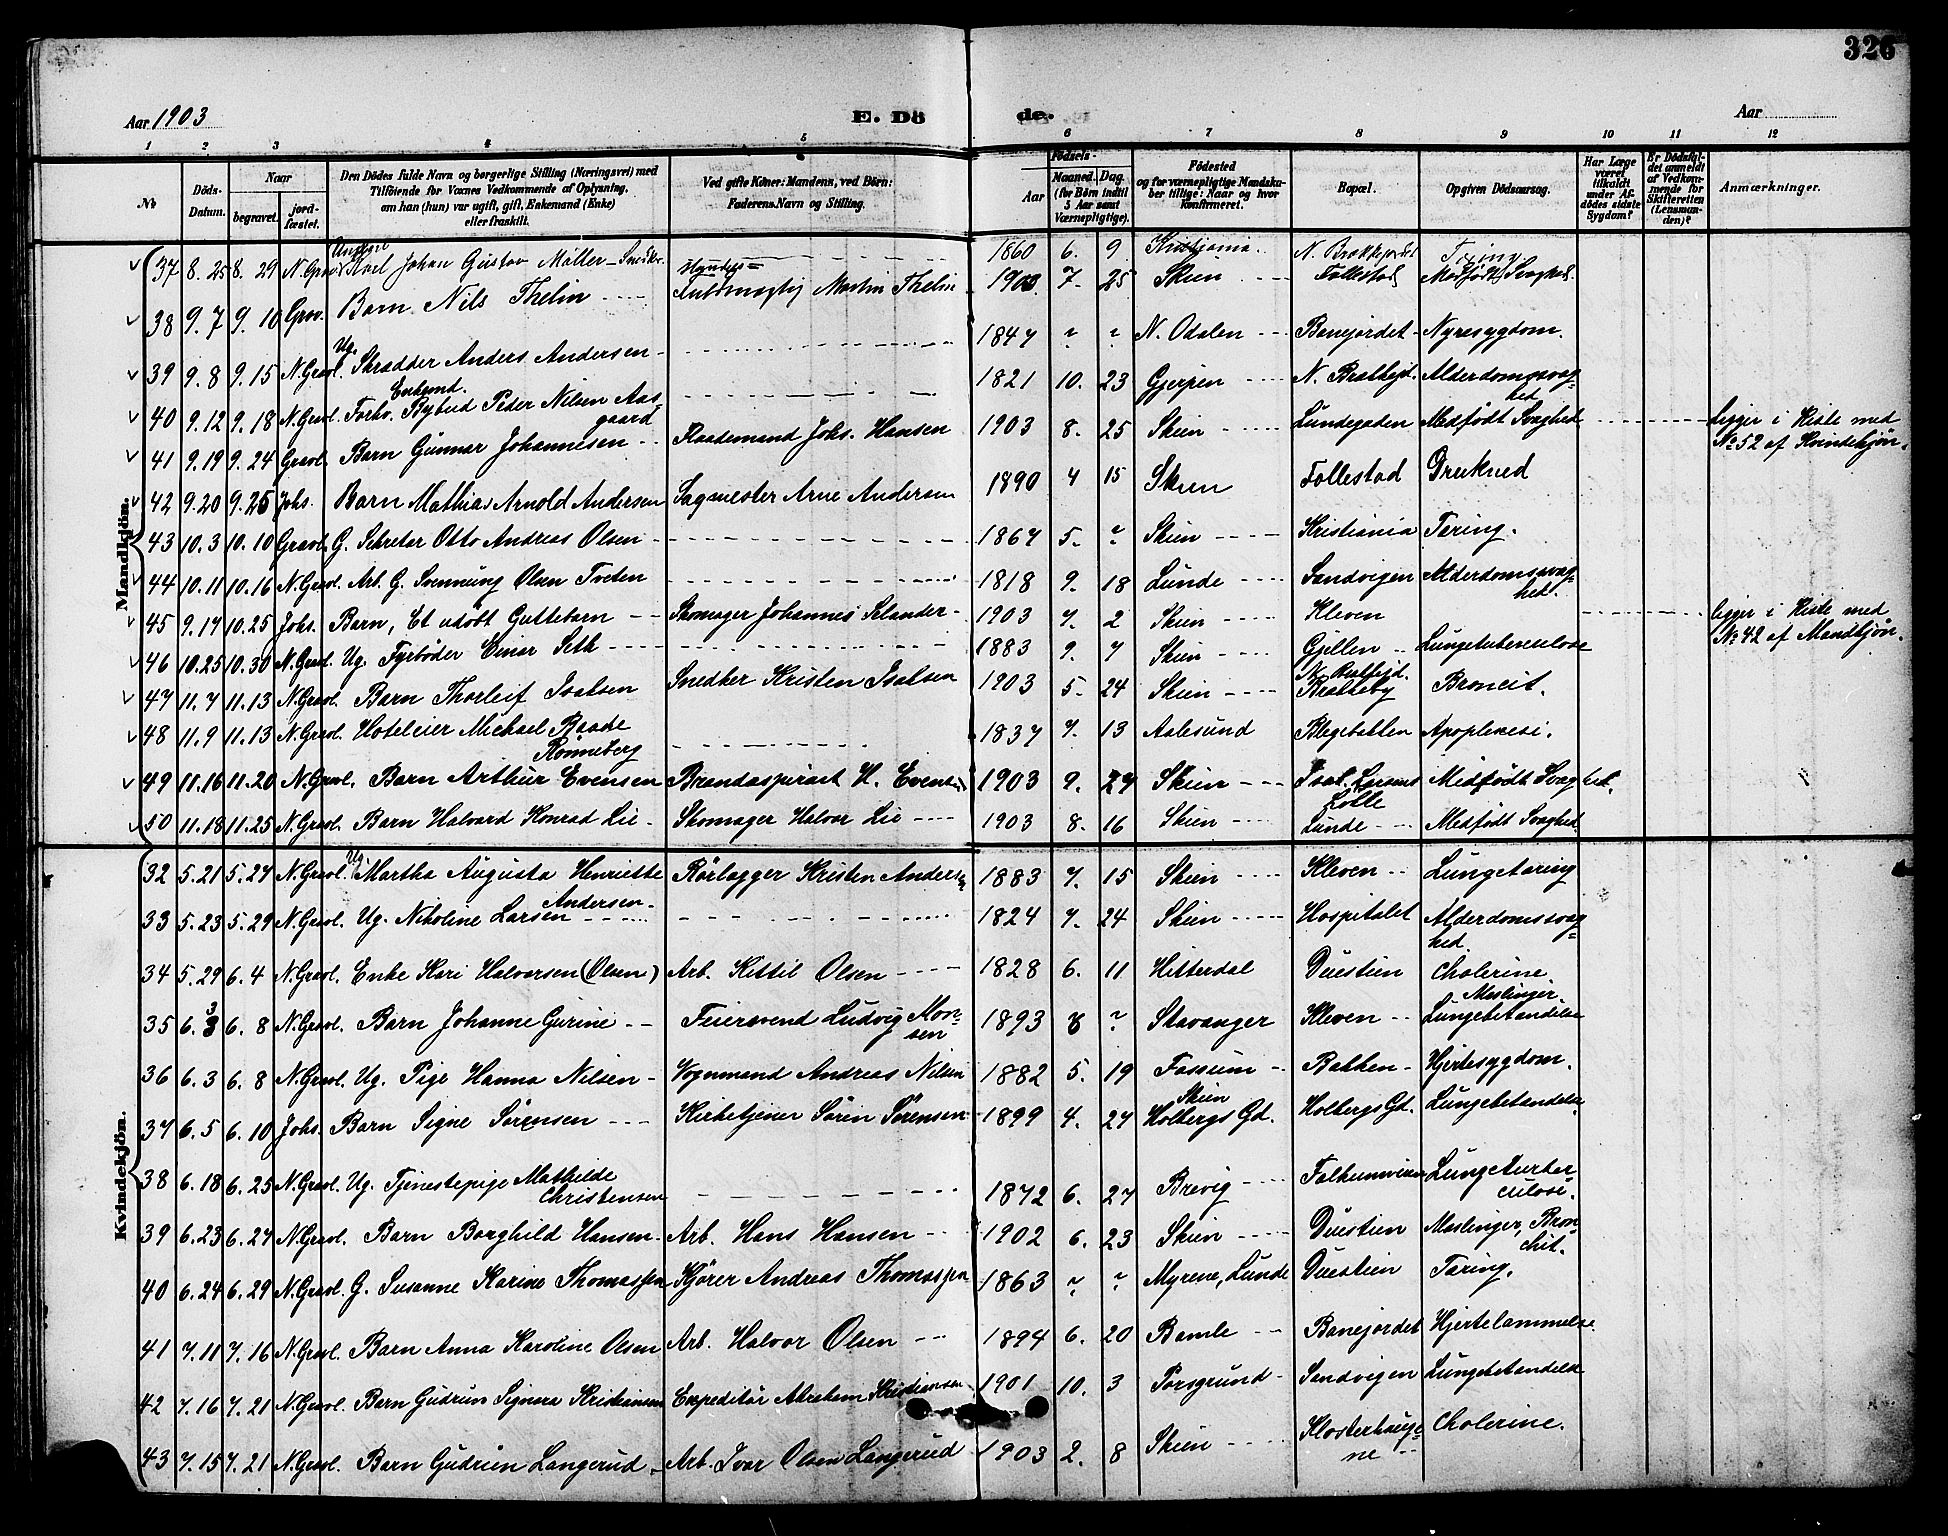 326
Aar 1903
E. Dö
de.
Aar
1 2 3 4 5 6 7 8 9 10 11 12
No
Döds-Datum.
Naar
begravet.
jord-fæstet.
Den Dödes fulde Navn og borgerlige Stilling (Næringsvei) med Tilföiende for Vœnes Vedkommende af Oplysning, om han (hun) var ugift, gift, Enkemand (Enke) eller fraskilt.
Ved gifte Koner: Mandens, ved Börn: Faderens Navn og Stilling.
Födsels-
Aar
Maaned. Dag.
(for Börn indtil 5 Aar samt Værnepligtige).
Födested og for værnepligtige Mandskaber tillige: Naar og hvor Konfirmeret.
Bopæl.
Opgiven Dödsaarsag.
Har Læge været tilkaldt under Afdödes sidste Sygdom?
Er Dödsfaldet anmeldt af Vedkommende for Skifteretten (Lensmanden)?
Anmærkninger.
Mandkjön.
37 8.25 8.29 N. Grav. Johan Gustav Möller - Snedker 1860 6. 9 Kristiania.
38 9.7 9.10 Grav. Barn Nils Thelin Fuldmægtig Martin Thelin 1903 7. 25 Skien Follestad Medfødt Svaghed.
39 9.8 9.15 N. Gravl. Ug. Skrædder Anders Andersen 1847 ? ? N. Odalen Banejordet Nyresygdom.
40 9.12 9.18 N. Gravl. Enkemd. Forhv. Bybud Peder Nilsen Aasgaard 1821 10. 23 Gjerpen Alderdomssvaghed
41 9.19 9.24 Gravl. Barn Gunnar Johannesen Johs. Hansen 1903 8. 25 Skien Lundegaden Medfødt Svaghed ligger i Kiste med No 52 af Kvindekjøn.
42 9.20 9.25 Johs. Barn Mathias Arnold Andersen Sagmester Arne Andersen 1890 4 15 Skien Follestad Drukned
43 10.3 10.10 Gravl. G. Sekretær Otto Andreas Olsen 1867 5. ? Skien Kristiania Tæring.
44 10.11 10.16 N. Gravl. Arb. G. Svennung Olsen Tveten 1818 9. 18 Lunde Sandvigen Alderdomssvaghed.
45 9.17 10.25 Johs. Barn, Et udøbt Guttebarn Skomager Johannes Selander 1903 7. 2 Skien Kleven ligger i Kiste med No 42 af Mandkjøn.
46 10.25 10.30 N. Gravl. Ug. Fyrbøder Einar Seth 1883 9. 7 Skien Gjellen Lungetuberculose
47 11.7 11.13 N. Gravl. Barn Thorleif Isaksen Snedker Kristen Isaksen 1903 5. 24 Skien Bratteby Broncit.
48 11.9 11.13 N. Gravl. Hoteleier Michael Raade Rønneberg 1837 7. 13 Aalesund Blegebakken Apoplexi.
49 11.16 11.20 N. Gravl. Barn Arthur Evensen Brandaspirant H. Evensen 1903 9. 27 Skien Larsens Løkke Medfødt Svaghed.
50 11.18 11.25 N. Gravl. Barn Halvard Konrad Lie Skomager Halvor Lie 1903 8. 16 Skien Lunde Medfødt Svaghed
Kvindekjön.
32 5.21 5.27 N. Gravl. Ug. Martha Augusta Henriette Andersen Rørlægger Kristen Andersen 1883 7. 15 Skien Kleven Lungetæring
33 5.23 5.29 N. Gravl. Ug. Nikoline Larsen 1824 7. 24 Skien Hospitalet Alderdomssvaghed
34 5.29 6.4 N. Gravl. Enke Kari Halvorsen (Olsen) Arb. Kittil Olsen 1828 6. 11 Hitterdal Duestien Cholerine
35 6.3 6.8 N. Gravl. Barn Johanne Gurine Feiersvend Ludvig Monsen 1893 8 ? Stavanger Kleven Meslinger. Lungebetændelse
36 6.3 6.8 N. Gravl. Ug. Pige Hanna Nilsen Vognmand Andreas Nilsen 1882 5. 19 Fossum Bakken Hjertesygdom.
37 6.5 6.10 Johs. Barn Signe Sørensen Kirketjener Søren Sørensen 1899 4. 27 Skien Holbergs Gd. Holbergs Gd. Lungebetændelse
38 6.18 6.25 N. Gravl. Ug. Tjenestepige Mathilde Christensen 1872 6. 27 Brevig Falkumveien Lungeturberculose.
39 6.23 6.27 N. Gravl. Barn Borghild Hansen Arb. Hans Hansen 1902 6. 23 Skien Duestien Meslinger, Bronchit.
40 6.24 6.29 N. Gravl. G. Susanne Karine Thomassen Kjører Andreas Thomassen 1863 ? ? Myrene, Lunde Duestien Tæring.
41 7.11 7.16 N. Gravl. Barn Anna Karoline Olsen Arb. Halvor Olsen 1894 6. 20 Bamle Banejordet Hjertelammelse.
42 7.16 7.21 N. Gravl. Barn Gudrun Signora Kristiansen Expeditør Abraham Kristiansen 1901 10. 3 Porsgrund Sandvigen Lungebetændelse
43 7.15 7.21 N. Gravl. Barn Gudrun Langerud Arb. Ivar Olsen Langerud 1903 2. 8 Skien Klosterhaugene Cholerine.